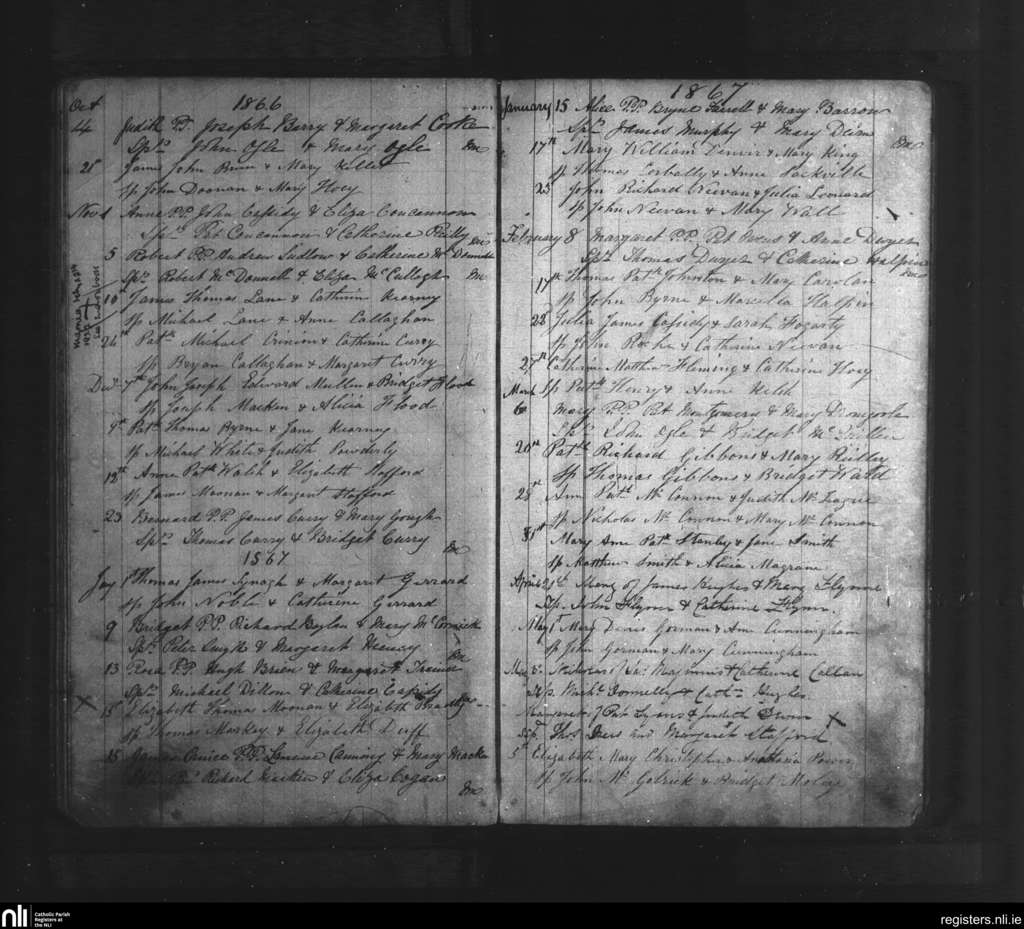 1866
Oct
4 Judith P. Joseph Berry & Margaret Cooke
Sprs John Ogle & Mary Ogle
21 James John Bunn & Mary
Sp John Doonan & Mary Hoey
Nov 1 Anne P.P. John Cassidy & Eliza Concannon
Sprs Pat Concannon & Catherine Reilly
5 Robert P.P. Andrew Ludlow & Catherine Mc Donnell
Sprs Robert Mc Donnell & Eliza Mc Cullagh
married
1938
10th James Thomas Lane & Catherin Kearney
Sp Michael Lane & Anne Callaghan
24th Patk Michael Crinion & Catherine Curry
Sp Bryan Callaghan & Margaret Curry
Dec 7th John Joseph Edward Mullen & Bridget Flood
Sp Joseph Macken & Alicia Flood
9th Patk Thomas Byrne & Jane Kearney
Sp Michael White & Judith Powderly
12th Anne Patk Walsh & Elizabeth Stafford
Sp James Moonan & Margaret Stafford
23 Bernard P.P. James Curry & Mary Gough
Sprs Thomas Curry & Bridget Curry
1867
Jay 1st Thomas James Synagh & Margaret Gerrard
Sp John Noble & Catherine Gerrard
9 Bridget P.P. Richard Boylan & Mary Mc Cormick
Sprs Peter & Margaret Heaney
13 Rosa P.P. Hugh Brien & Margaret Trainer
Sprs Michael Dillon & Catherine Cassidy
15th Elizabeth Thomas Moonan & Elizabeth
Sp Thomas Markey & Elizabeth Duff
15 James P.P. Canning & Mary Macken
Robert Macken & Eliza Cogan
1867
January 15 Alice P.P. Bryne Farrell & Mary Barrow
Sprs James Murphy & Mary
17th Mary William & Mary King
Sp Thomas Corbally & Anne Sackville
23 John Richard Neevan & Julia Leonard
Sp John Neevan & Mary Wall
February 8 Margaret P.P. Pat Owens & Anne Dwyer
Sprs Thomas Dwyer & Catherine Halpin
17th Thomas Patk Johnston & Mary Carolan
Sp John Byrne & Marcella Halpin
23 Julia James Cassidy & Sarah Fogarty
Sp John Roche & Catherine Neevan
27th Catherine Matthew Fleming & Catherine Hoey
March Sp Patk Henry & Anne Welsh
6 Mary P.P. Pat Montgomery & Mary Dromgoole
Sprs John Ogle & Bridget Mc
20th Patk Richard Gibbons & Mary Reilly
Sp Thomas Gibbons & Bridget Ward
28th Ann Patk Mc Connon & Judith
Sp Nicholas Mc Connon & Mary Mc Connon
31st Mary Anne Patk Stanley & Jane Smith
Sp Matthew Smith & Alicia Magrane
April 21st Mary of James & Mary Flynne
Sp. John Flynn & Catherine Flynn.
May 1st Mary Denis Gorman & Ann Cunningham
Sp John Gorman & Mary Cunningham
May 5 Nicholas & Catherine Callan
Sp. Donnelly & Cathn Hughes
Margaret of Pat Lyons & Judith
Thos and Margaret Stafford
5th Elizabeth Mary Christopher & Anastasia Power
Sp John Mc Golrick & Bridget
nli Catholic Parish
Registers at
the NLI
registers.nli.ie